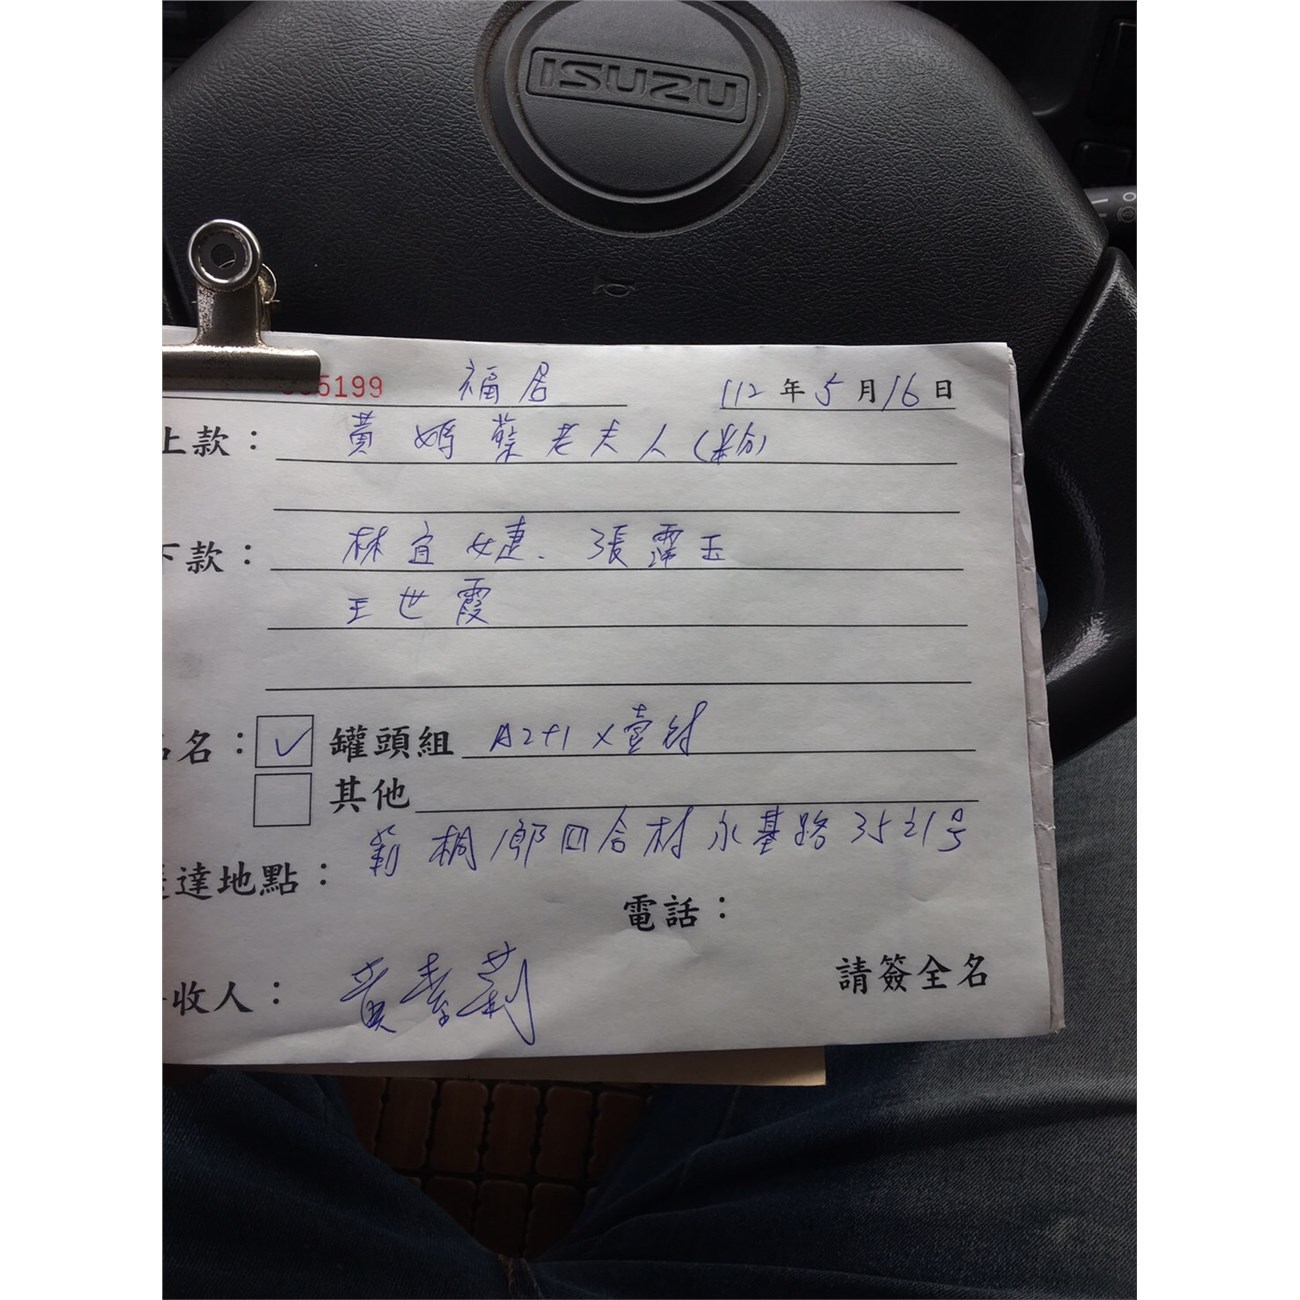 ISUZU
5199 福居 112年5月16日
上款： 黃媽蔡老夫人(粉)
下款： 林宜婕、張霈玉
王世霞
名： ✓ 罐頭組 A2+1 x壹對
其他
莿桐鄉四合村永基路35之1號
達地點：
電話：
收人： 黃素莉
請簽全名